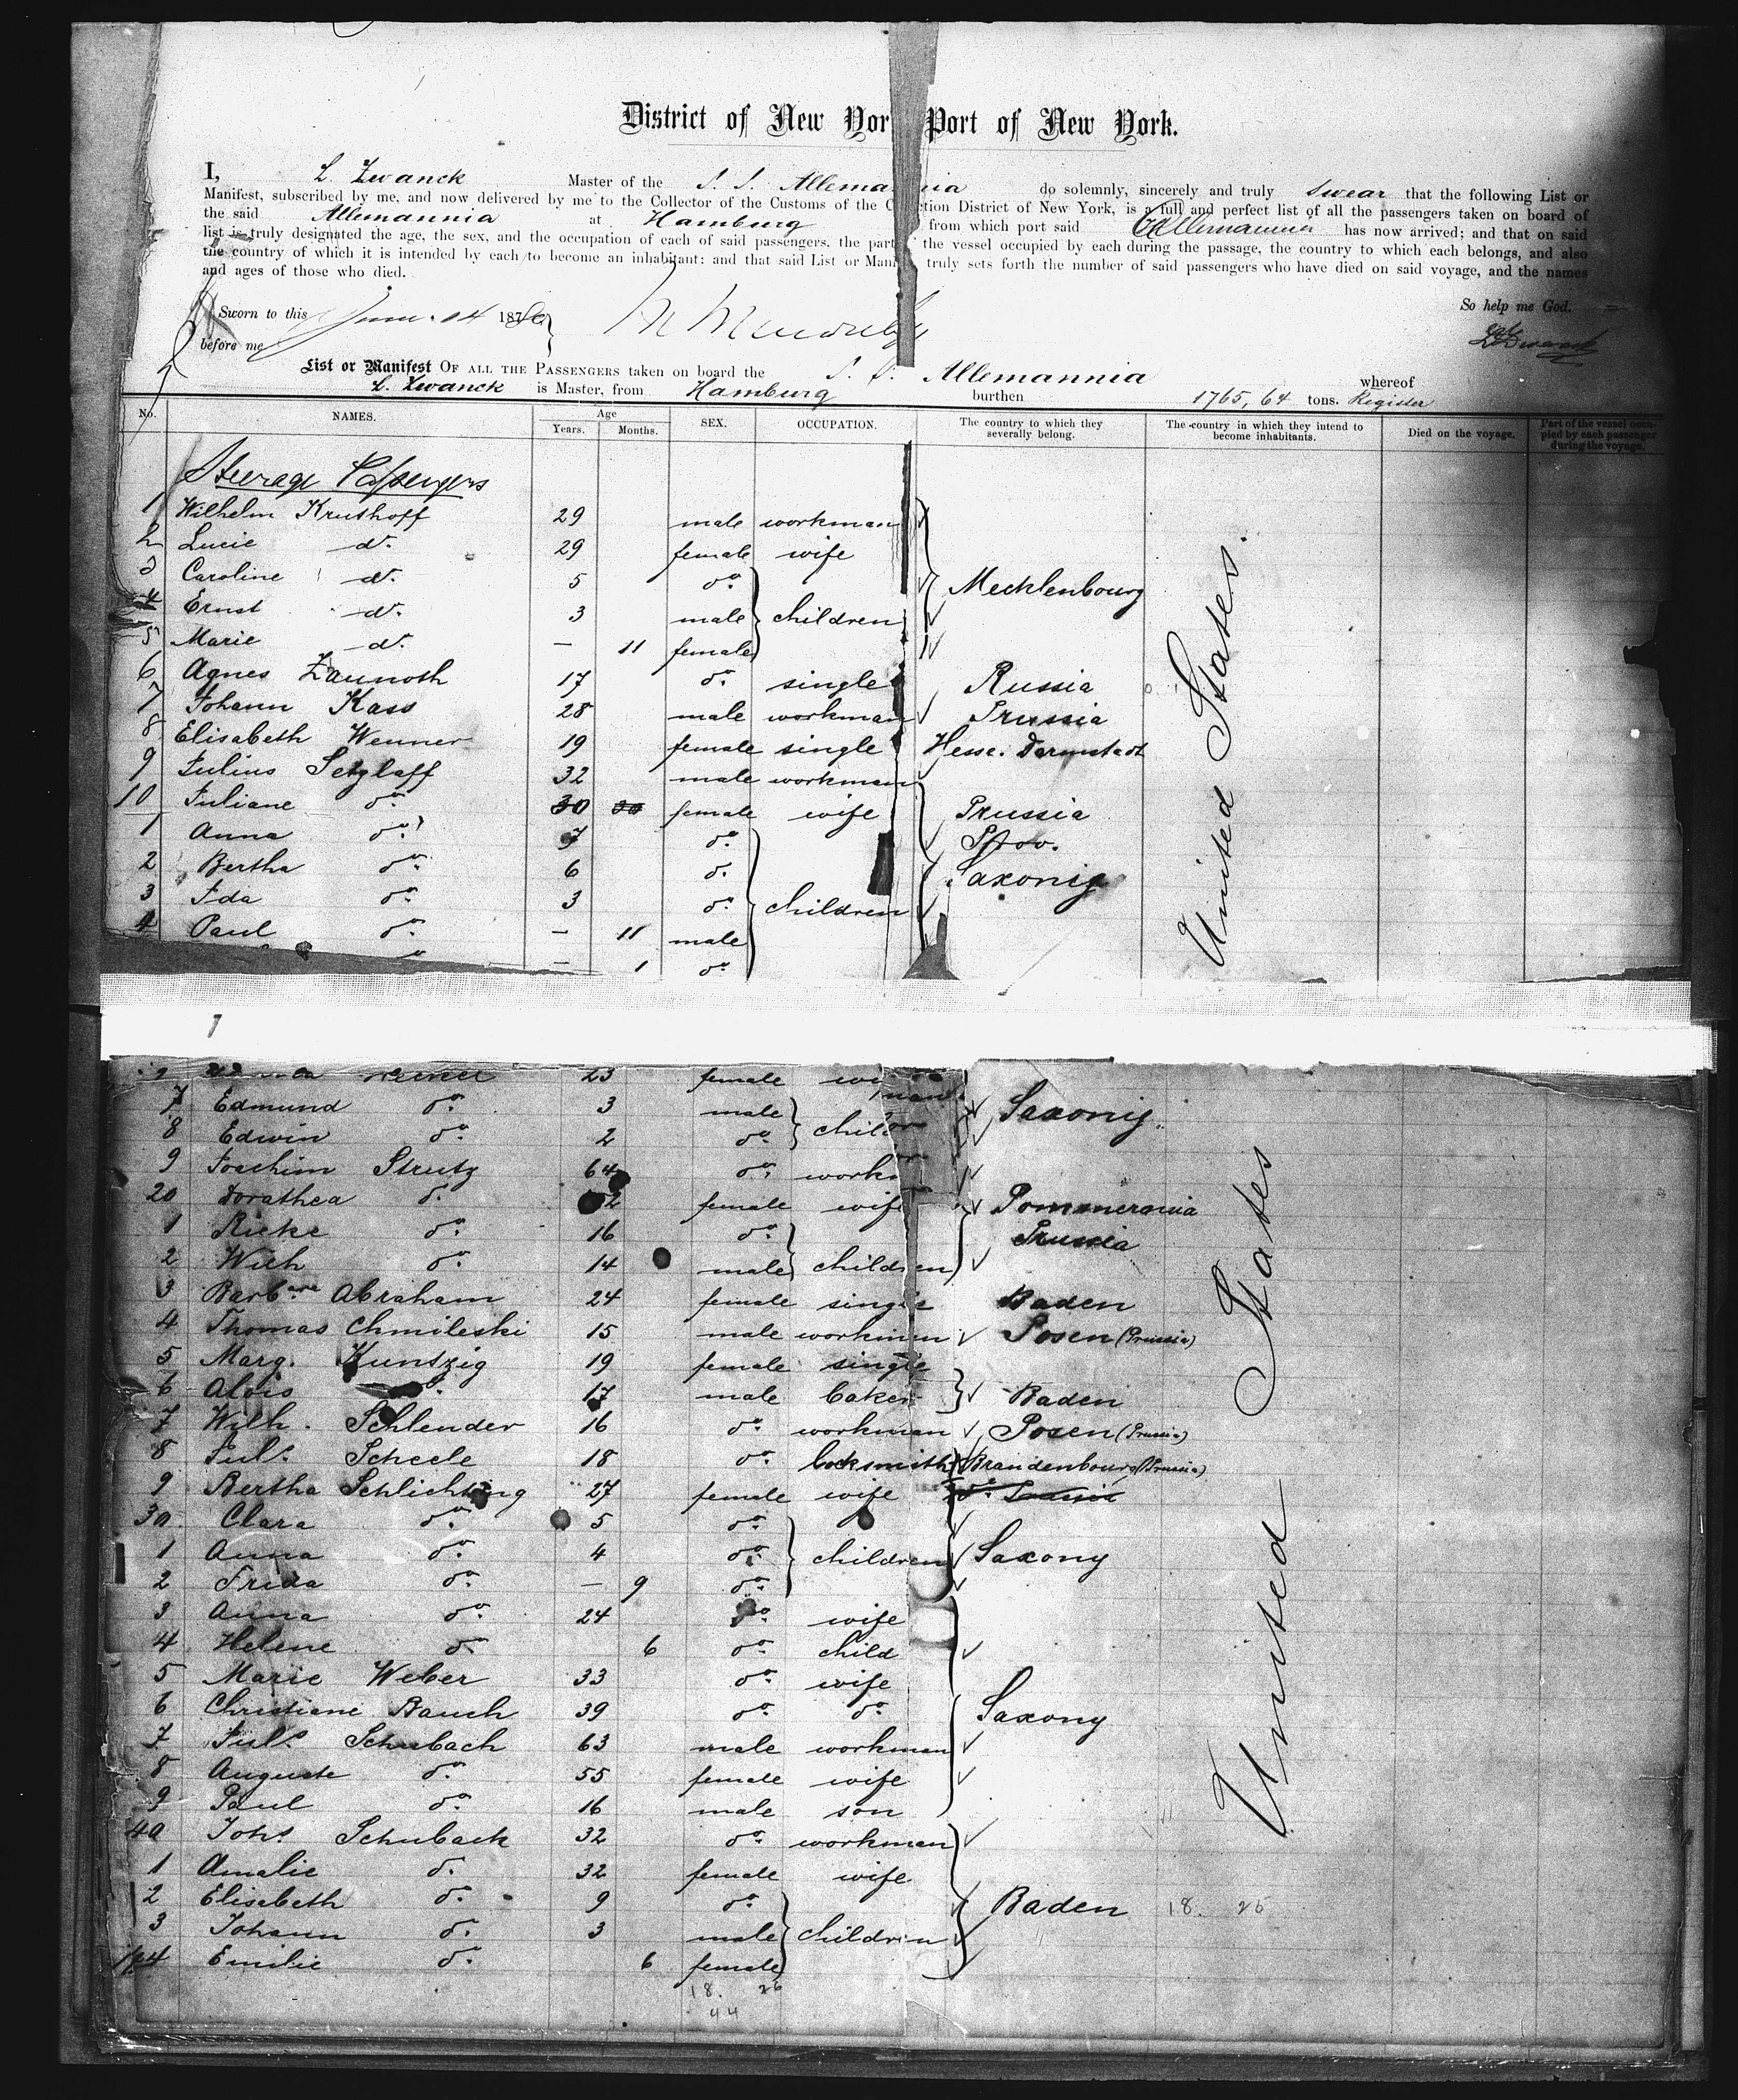 District of New Yor Port of New York.
I, L. Zwanck Master of the S. S. Allemannia do solemnly, sincerely and truly swear that the following List or
Manifest, subscribed by me, and now delivered by me to the Collector of the Customs of the C ction District of New York, is a full and perfect list of all the passengers taken on board of
the said Allemannia at Hamburg from which port said Allemannia has now arrived; and that on said
list is truly designated the age, the sex, and the occupation of each of said passengers, the part the vessel occupied by each during the passage, the country to which each belongs, and also
the country of which it is intended by each to become an inhabitant: and that said List or Mani truly sets forth the number of said passengers who have died on said voyage, and the names
and ages of those who died.
So help me God.
Sworn to this June 14 187
before me
List or Manifest OF ALL THE PASSENGERS taken on board the S. S. Allemannia whereof
L. Zwanck is Master, from Hamburg burthen 1765,64 tons. Register
No. NAMES. Age Years. Months. SEX. OCCUPATION. The country to which they severally belong. The country in which they intend to become inhabitants. Died on the voyage. Part of the vessel occupied by each passenger during the voyage.
Steerage Passengers
1 Wilhelm Krusthoff 29 male workman
2 Lucie do. 29 female wife
3 Caroline do. 5 do. Mecklenbourg
4 Ernst do. 3 male children
5 Marie do. — 11 female
6 Agnes Zaunoth 17 do. single Russia
7 Johann Kass 28 male workman Prussia
8 Elisabeth Wenner 19 female single Hesse. Darmstadt
9 Julius Setzlaff 32 male workman
10 Juliane do. 30 30 female wife Prussia
1 Anna do. 7 do. Prov.
2 Bertha do. 6 do. Saxonig
3 Ida do. 3 do. children
4 Paul do. — 11 male
do — 1 do.
United States.
23 female
7 Edmund do. 3 male Saxonig
8 Edwin do. 2 do. child
9 Joachim Strutz 64 do. work
20 Dorathea do. 2 female wife Pommerania
1 Rieke do. 16 do. Prussia
2 Wilh do. 14 male children
3 Barbara Abraham 24 female single Baden
4 Thomas Chmileski 15 male workman Posen (Prussia)
5 Marg. Kuntzig 19 female single
6 Alois 17 male baker Baden
7 Wilh. Schlender 16 do. workman Posen (Prussia)
8 Juls. Scheele 18 do. locksmith Brandenbourg (Prussia)
9 Bertha Schlichting 27 female wife
30. Clara do. 5 do.
1 Anna do. 4 do. children Saxony
2 Frida do. — 9 do.
3 Anna do. 24 do. wife
4 Helene do. 6 do. child
5 Marie Weber 33 do. wife
6 Christiane Rauch 39 do. do. Saxony
7 Juls. Schubach 63 male workman
8 Auguste do. 55 female wife
9 Paul do. 16 male son
40 Johs Schuback 32 do. workman
1 Amalie do. 32 female wife
2 Elisabeth do. 9 do. Baden 18. 26
3 Johann do. 3 male children
44 Emilie do. 6 female
18. 26
44
United States